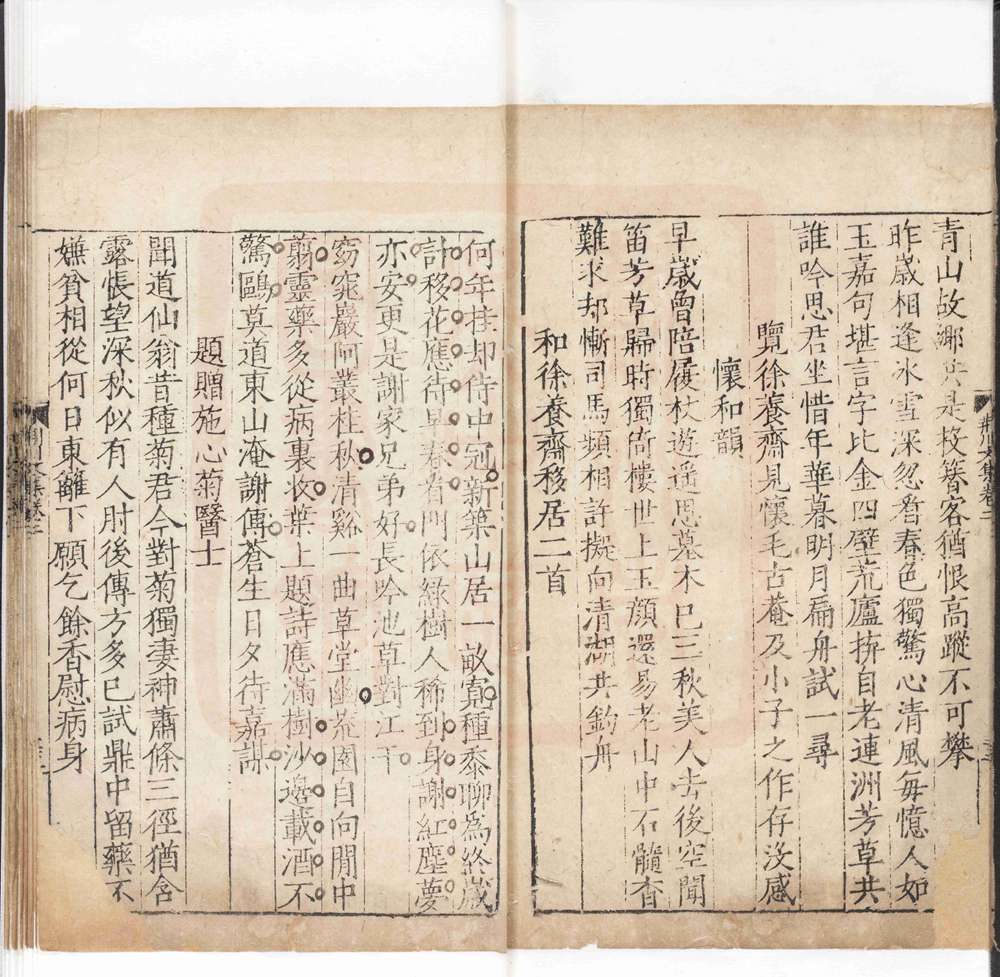 青山故鄉共是投簪客猶恨高蹤不可攀
昨歲相逢冰雪深忽看春色獨驚心清風每憶人如
玉嘉句堪言字比金四壁荒廬拚自老連洲芳草共
誰吟思君坐惜年華暮明月扁舟試一尋
覽徐養齋見懷毛古菴及小子之作存沒感
懷和韻
早歲曾陪屐杖遊遥思墓木已三秋美人去後空聞
笛芳草歸時獨倚樓世上玉顏還易老山中石髓杳
難求却慚司馬頻相許擬向清湖共釣舟
和徐養齋移居二首
何年挂却侍中冠新築山居一畝寬種黍聊爲終歲
計移花應待早春看門依綠樹人稀到身謝紅塵夢
亦安更是謝家兄弟好長吟池草對江干
窈窕巖阿叢桂秋清谿一曲草堂幽茶園自向閒中
翦靈藥多從病裏收葉上題詩應滿樹沙邊載酒不
驚鷗莫道東山淹謝傅蒼生日夕待嘉謀
題贈施心菊醫士
聞道仙翁昔種菊君今對菊獨凄神蕭條三徑猶含
露悵望深秋似有人肘後傳方多已試鼎中留藥不
嫌貧相從何日東籬下願乞餘香慰病身